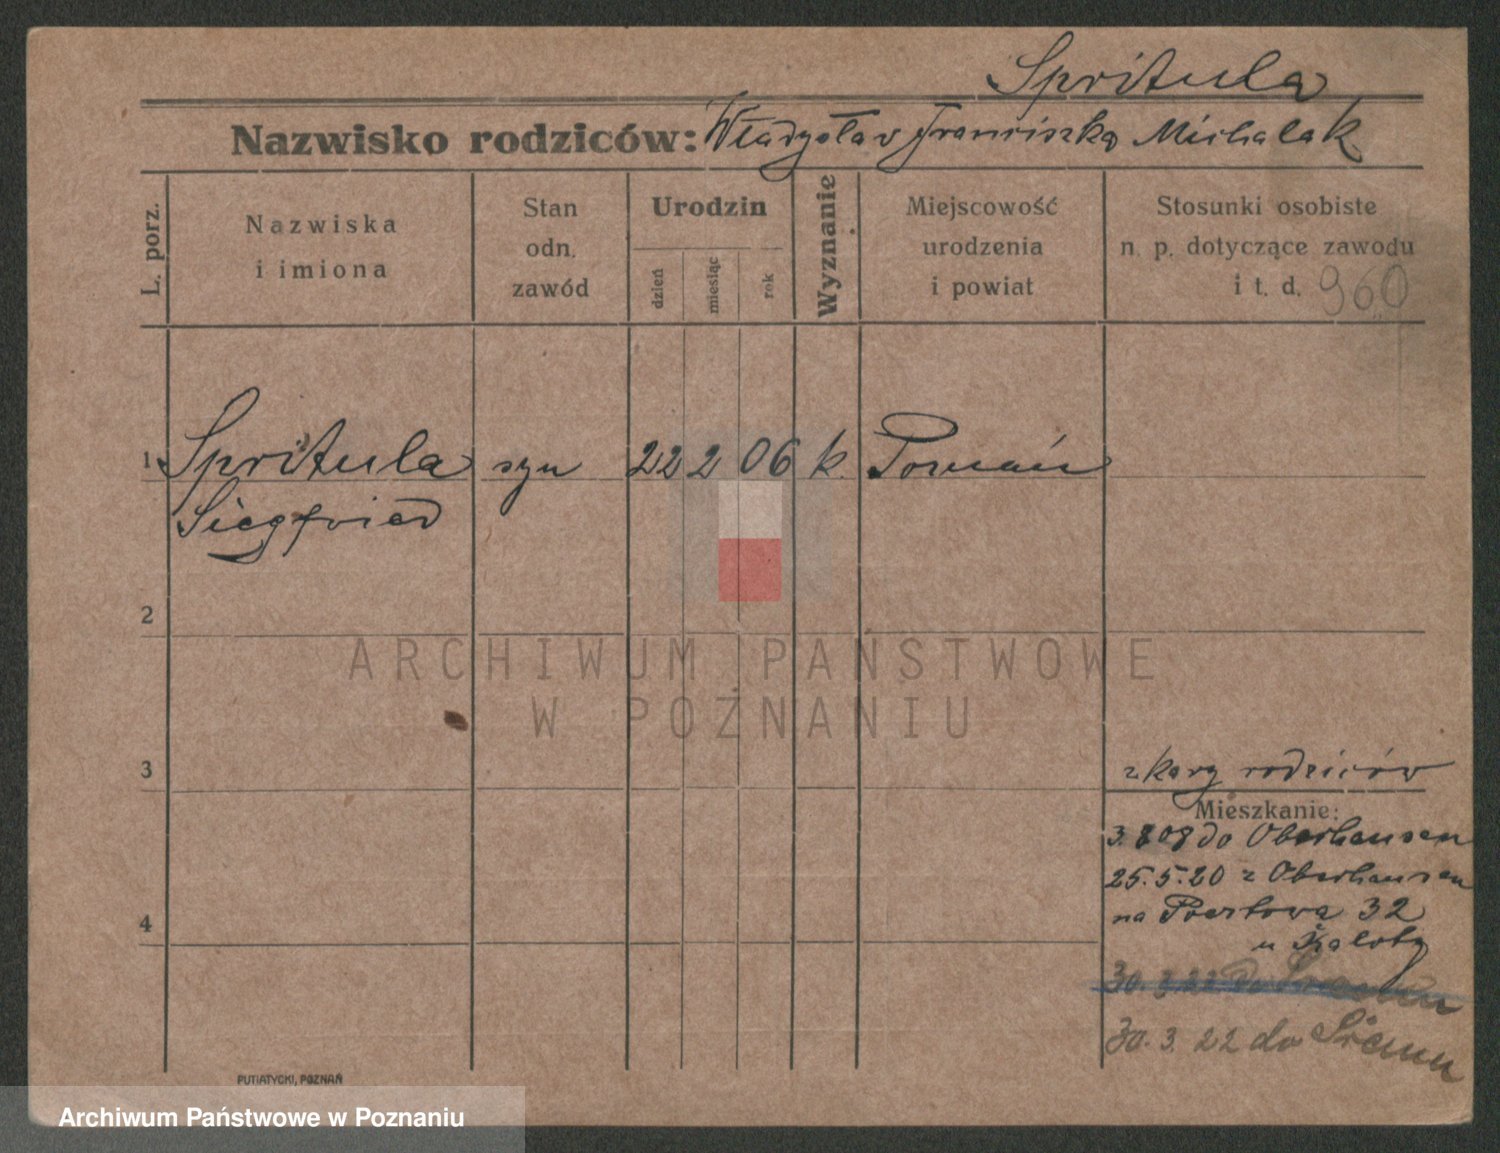 Spritula
Nazwisko rodziców: Władysław Franciszka Michalak
L. porz.
Nazwiska
i imiona
Stan
odn.
zawód
Urodzin
dzień
miesiąc
rok
Wyznanie
Miejscowość
urodzenia
i powiat
Stosunki osobiste
n. p. dotyczące zawodu
i t. d. 960
1 Spritula syn 22 2 06 k. Poznań
Siegfried
2
ARCHIWUM PAŃSTWOWE
W POZNANIU
3
z karty rodziców
Mieszkanie:
3. 8 08 do Oberhausen
25.5.20 z Oberhausen
na Pocztową 32
4
u
30. 3 22 do Śremu
30. 3. 22 do Śremu
PUTIATYCKI, POZNAŃ
Archiwum Państwowe w Poznaniu